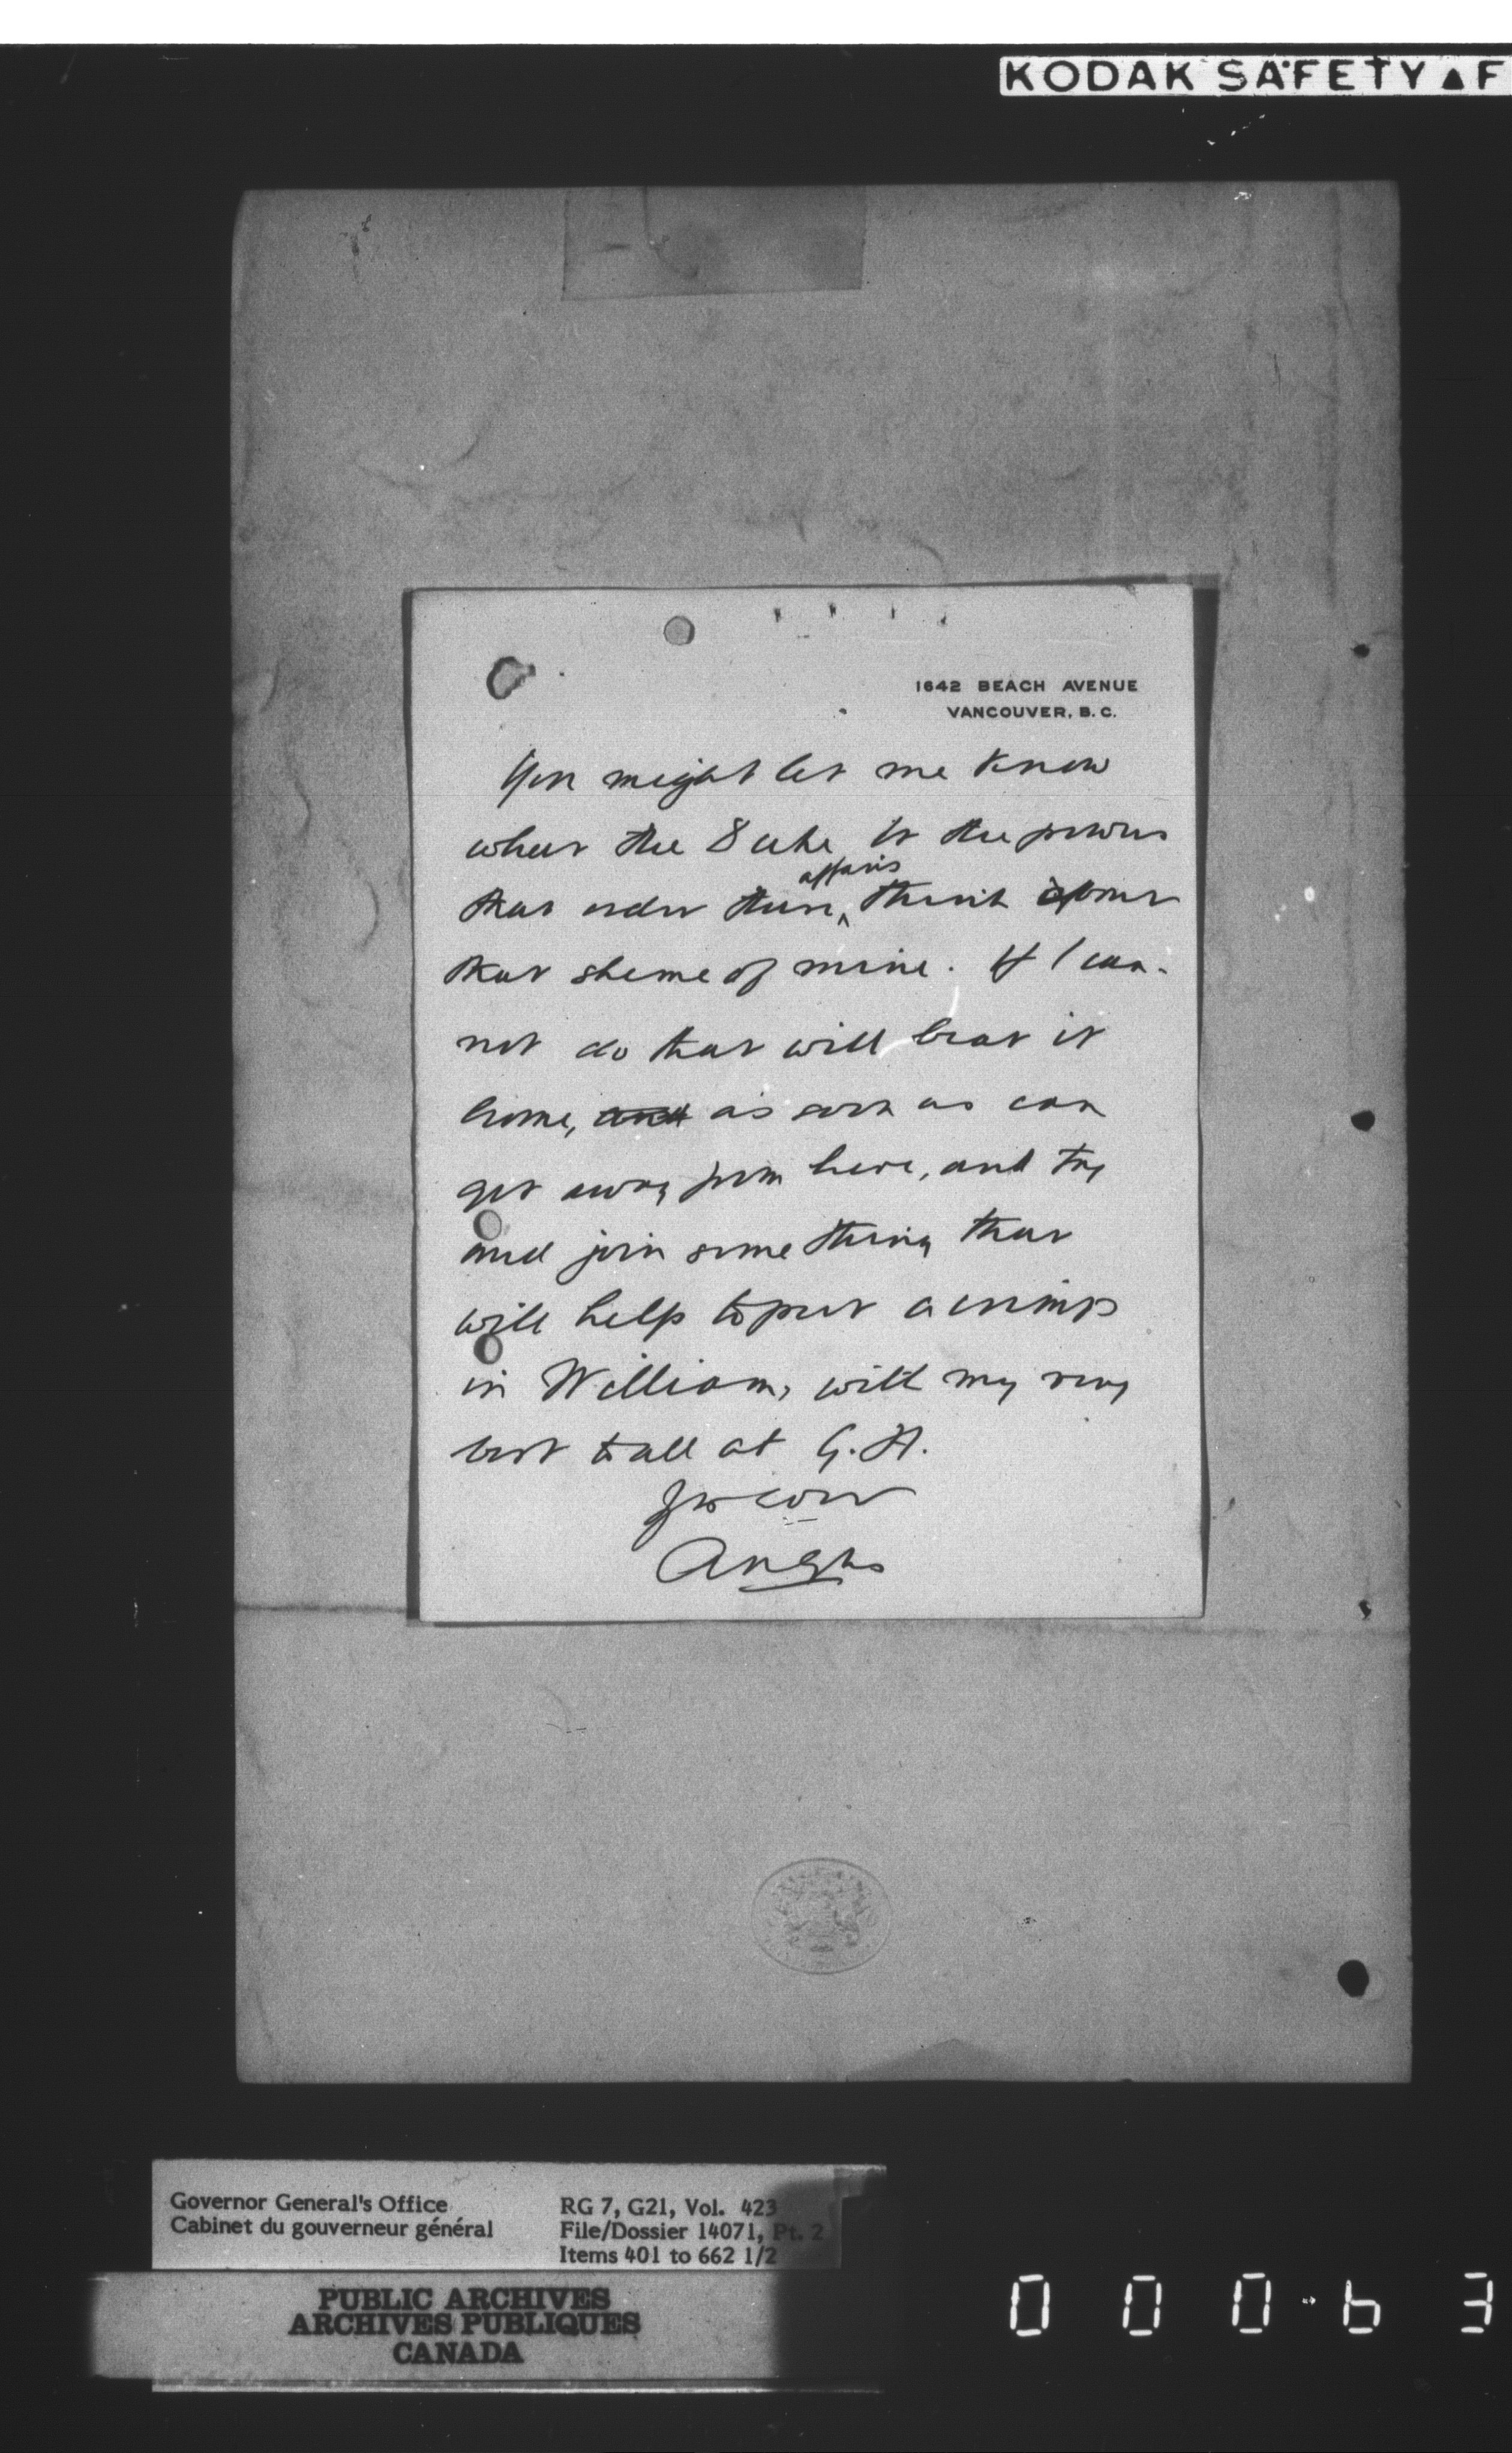 KODAK SAFETY ▲ F
1642 BEACH AVENUE
VANCOUVER, B.C.
You might let me know
what the Duke or the powers
that order these affairs think about
that sheme of mine. If I can-
not do that will beat it
home, and as soon as can
get away from here, and try
and join some thing that
will help to put a crimp
in William, with my very
best to all at G.H.
Angus
Governor General's Office
Cabinet du gouverneur général
RG 7, G21, Vol. 423
File/Dossier 14071, Pt. 2
Items 401 to 662 1/2
PUBLIC ARCHIVES
ARCHIVES PUBLIQUES
CANADA